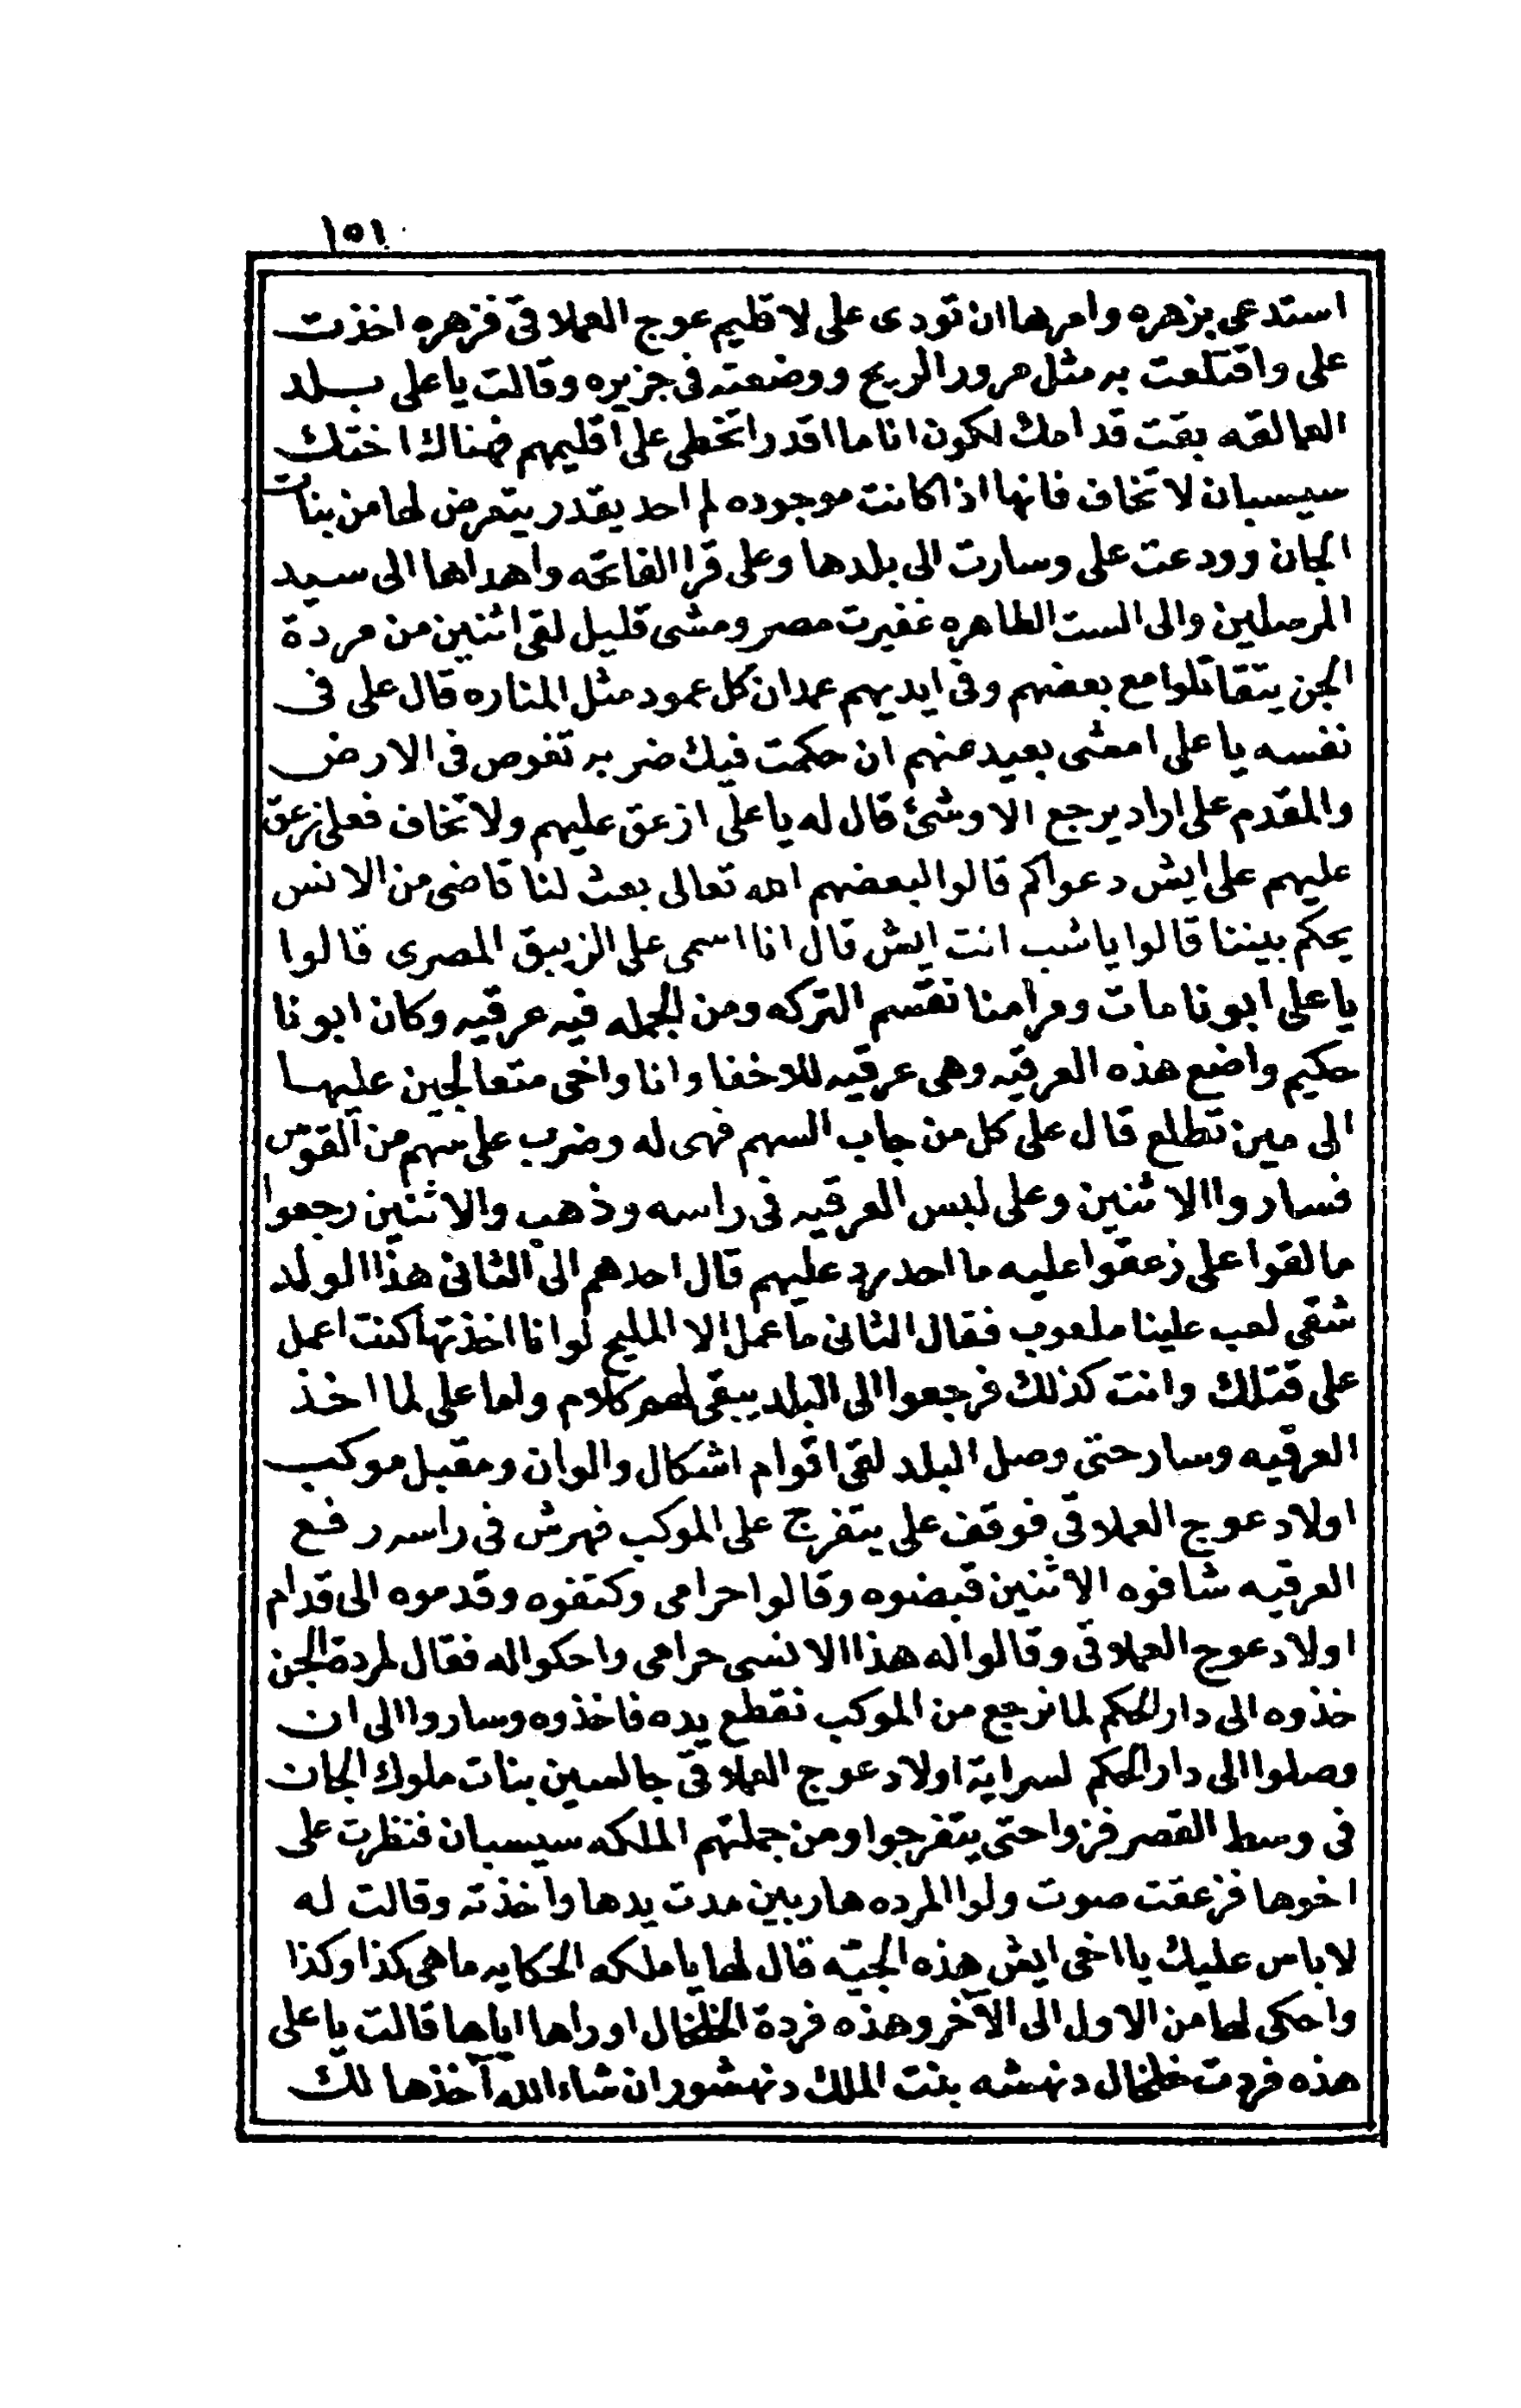 ١٥١
استدعى بزهره وامرها ان تودى على لاقليم عوج العملاقى فزهره اخذت
على واقتلعت به مثل مرور الريح ووضعته فى جزيره وقالت يا على بلد
العمالقه بقت قدامك لكون انا ما اقدر اتخطى على اقليمهم فهناك اختك
سيسبان لا تخاف فانها اذا كانت موجوده لم احد يقدر يتعرض لها من بنات
الجان وودعت على وسارت الى بلدها وعلى قرا الفاتحه واهداها الى سيد
المرسلين والى الست الطاهره غفيرت مصر ومشى قليل لقى اثنين من مردة
الجن يتقاتلوا مع بعضهم وفى ايديهم عمدان كل عمود مثل المناره قال على فى
نفسه يا على امشى بعيد عنهم ان حكمت فيك ضربه تغوص فى الارض
والمقدم على اراد يرجع الا وشئ قال له يا على ازعق عليهم ولا تخاف فعلى زعق
عليهم على ايش دعواكم قالوا لبعضهم الله تعالى بعث لنا قاضى من الانس
يحكم بيننا قالوا يا شب انت ايش قال انا اسمى على الزيبق المصرى قالوا
يا على ابونا مات ومرامنا نقسم التركه ومن الجمله فيه عرقيه وكان ابونا
حكيم واضع هذه العرقيه وهى عرقيه للاخفا وانا واخى متعالجين عليها
الى مين تطلع قال على كل من جاب السهم فهى له وضرب على سهم من القوس
فساروا الاثنين وعلى لبس العرقيه فى راسه وذهب والاثنين رجعوا
ما لقوا على زعقوا عليه ما احد رد عليهم قال احدهم الى الثانى هذا الولد
شقى لعب علينا ملعوب فقال الثانى ما عمل الا المليح لو انا اخذتها كنت اعمل
على قتلك وانت كذلك فرجعوا الى البلد يبقى لهم كلام واما على لما اخذ
العرقيه وسار حتى وصل البلد لقى اقوام اشكال والوان ومقبل موكب
اولاد عوج العملاقى فوقف على يتفرج على الموكب فهرش فى راسه رفع
العرقيه شافوه الاثنين قبضوه وقالوا حرامى وكتفوه وقدموه الى قدام
اولاد عوج العملاقى وقالوا له هذا الانسى حرامى واحكوا له فقال لمردة الجن
خذوه الى دار الحكم لما نرجع من الموكب نقطع يده فاخذوه وساروا الى ان
وصلوا الى دار الحكم لسراية اولاد عوج العملاقى جالسين بنات ملوك الجان
فى وسط القصر فزوا حتى يتفرجوا ومن جملتهم الملكه سيسبان فنظرت على
اخوها فزعقت صوت ولوا المرده هاربين مدت يدها واخذته وقالت له
لا باس عليك يا اخى ايش هذه الجيّه قال لها يا ملكه الحكايه ما هى كذا وكذا
واحكى لها من الاول الى الآخر وهذه فردة الخلخال اوراها اياها قالت يا على
هذه فردت خلخال دنهشه بنت الملك دنهشور ان شاء الله آخذها لك